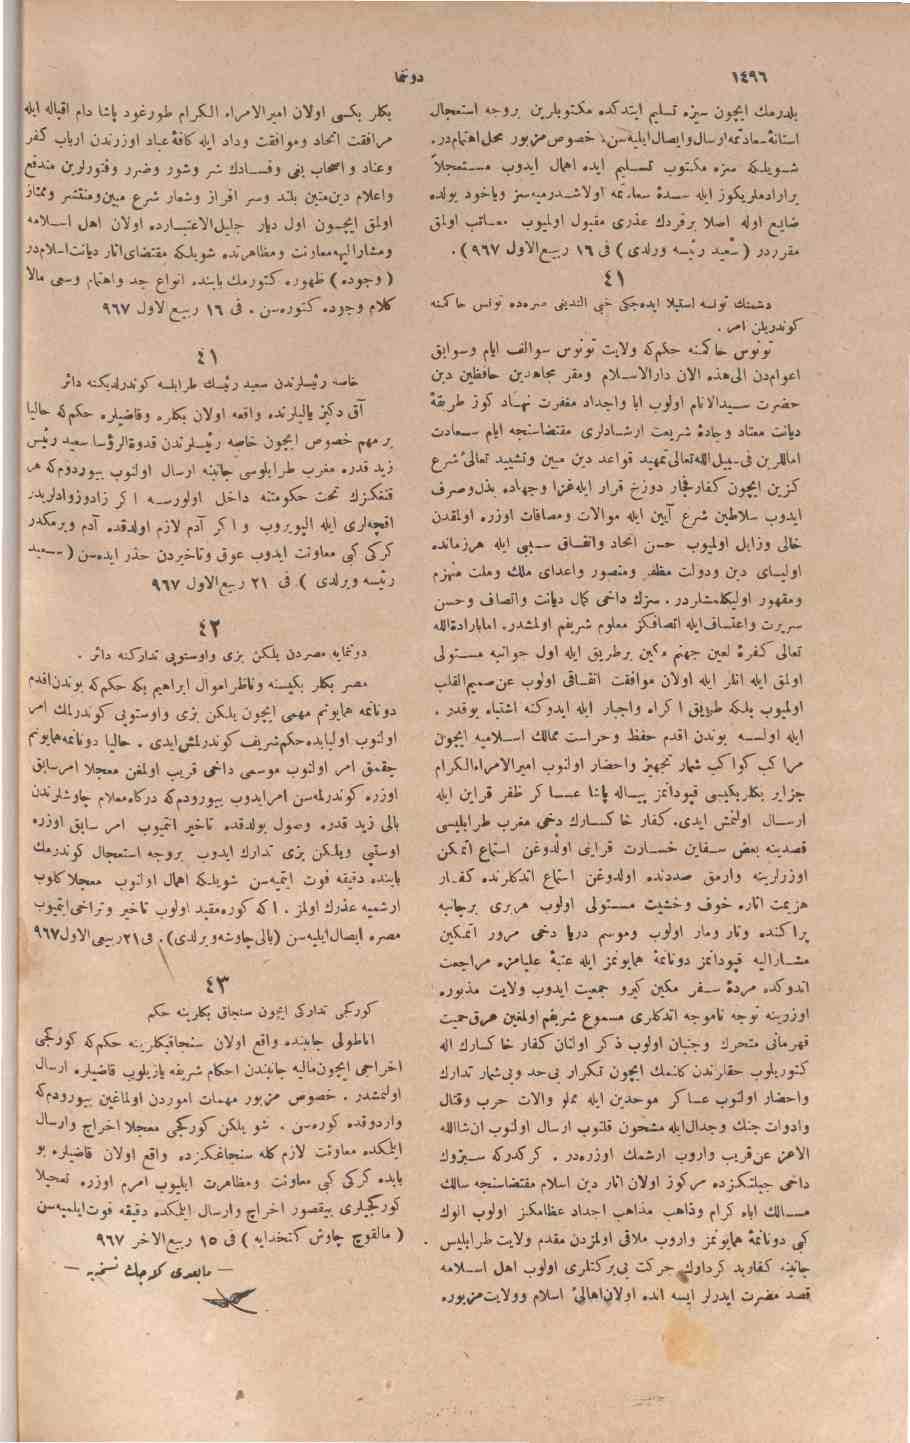 ١٤٩٦
دوننما
بلدرمك ایچون سیزه تسلیم ایتدكده مكتوبلرین بروجه استعجال
استانۀ سعادتمه ارسال وایصال ایلیه سن. خصوص مزبور محل اهتمامدر.
شویله كه سزه مكتوب تسلیم ایده اهمال ایدوب مستعجلاً
یرارادملریكوز ایله سدۀ سعادتمه اولاشدرمیه سز ویاخود یولده
ضایع اوله اصلا برفردك عذری مقبول اولمیوب معاتب اولمق
مقرردر ( سعید رئیسه ورلدی ) فی ١٦ ربیع الاول ٩٦٧ ).
٤١
دشمنك تونسه استیلا ایده جكی خبی الندیغی صره ده تونس حاكمنه
كوندریلن امر .
تونوس حاكمنه حكم كه ولایت تونوس سوالف ایام وسوابق
اعوامدن الی هذه الان دارالاسلام ومقر مجاهدین حافظین دین
حضرت سیدالانام اولوب ابا واجداد مغفرت نهاد كوز طریقۀ
دیانت معتاد وجادۀ شریعت ارشادلری مقتضاسنجه ایام سعادت
اماللرین فی سبیل الله تعالی تمهید قواعد دین مبین وتشیید تعالیٔ شرع
كزین ایچون كفار فجار دوزخ قرار ایله غزا وجهاده بذل وصرف
ایدوب سلاطین شرع آیین ایله موالات ومصافات اوزره اولمقدن
خالی وزایل اولمیوب حسن اتحاد واتفاق سببی ایله هرزمانده
اولیای دین ودولت مظفر ومنصور واعدای ملك وملت منهزم
ومقهور اولیكلمشلردر. سزك داخی كمال دیانت واتصاف وحسن
سریرت واعتساف ایله اتصافكز معلوم شریفم اولمشدر. امابارادةالله
تعالی كفرۀ لعین جهنم مكین برطریق ایله اول جوانبه مستولی
اولمق ایله انلر ایله اولان موافقت اتفاقی اولوب عن صمیم القلب
اولمیوب بلكه طریق اكراه واجبار ایله ایدوكنه اشتباه یوقدر .
ایله اولسه بوندن اقدم حفظ وحراست ممالك اسلامیه ایچون
مراكب كواكب شمار تجهیز واحضار اولنوب امیرالامراءالكرام
جزایر بكلربكیسی قپودانمز پیاله پاشا عساكر ظفر قراین ایله
ارسال اولنمش ایدی. كفار خاكسارك دخی مغرب طرابلیسی
قصدینه بعض سفاین خسارت قراینی اولدوغن استماع اتمكن
اوزرلرینه وارمق صددنده اولدوغن استماع اتدكلرنده كفار
هزیمت اثاره خوف وخشیت مستولی اولوب هربری برجانبه
پراكنده وتار ومار اولوب وموسم دریا دخی مرور اتمكین
مشارالیه قپودانمز دونانمۀ همایونمز ایله عتبۀ علیامزه مراجعت
اتدوكده مردۀ سقر مكین كیرو جمعیت ایدوب ولایت مذبوره
اوزرینه توجه ناموجه اتدكلری مسموع شریفم اولمغین عرق حمیت
قهرمانی متحرك وجنبان اولوب ذكر اولنان كفار خاكسارك اله
كتوریلوب حقارندن كلنمك ایچون تكرار بی حد وبی شمار تدارك
واحضار اولنوب عساكر موحدین ایله مملو والات حرب وقتال
وادوات جنك وجدال ایله مشحون قلنوب ارسال اولنوب انشاالله
الاعز عن قریب واروب ارشمك اوزره در . كركدركه سیزوك
داخی جبلتكزده مركوز اولان اثار دین اسلام مقتضاسنجه سالك
مسالك اباء كرام وذاهب مذاهب اجداد عظامكز اولوب الوك
كبی دونانمۀ همایونمز واروب ملاقی اولمزدن مقدم ولایت طرابلیس
جانبنه كفاربد كرداوك حركت بی بركتلری اولوب اهل اسلامه
قصد مضرت ایدرلر ایسه انده اولان اهالیٔ اسلام وولایت مزبوره
بكلر بكیسی اولان امیرالامراء الكرام طورغود پاشا دام اقباله ایله
مرافقت اتحاد وموافقت وداد ایله كافۀ عباد اوزرندن ارباب كفر
وعناد واصحاب بغی وفسادك شر وشور وضرر وفتورلرین مندفع
واعلام دین متین بلند وسر افراز وشعار شرع مبین ومنتشر وممتاز
اولمق ایچون اول دیار جلیل الاعتبارده اولان اهل اسلامه
ومشارالیهه معاونت ومظاهرتده شویلكه مقتضای اثار دیانت اسلامدر
( وجوده ) ظهوره كتورمك بابنده انواع جد واهتمام وسعی مالا
كلام وجوده كتوره سن . فی ١٦ ربیع الاول ٩٦٧
٤١
خاصه رئیسلرندن سعید رئیسك طرابلسه كوندرلدیكنه دائر
آق دكیز یالیلرنده واقعه اولان بكلره وقاضیلره حكم كه حالیا
بر مهم خصوص ایچون خاصه رئیسلرندن قدوةالرؤسا سعید رئیس
زید قدره مغرب طرابلوسی جانبنه ارسال اولنوب بیوردوم كه هر
قنغكزك تحت حكومتنه داخل اولورسه اكر زادوزوادلریدر
اقچه لری ایله الیویروب و اكر آدم لازم اولدقده آدم ویرمكدر
كركی كبی معاونت ایدوب عوق وتاخیردن حذر ایده سن ( سعید
رئیسه ویرلدی ) فی ٢١ ربیع الاول ٩٦٧
٤٢
دوننمایه مصردن یلكن بزی واوستوپی تداركنه دائر .
مصر بكلر بكیسنه وناظر اموال ابراهیم بكه حكم كه بوندن اقدم
دونانمه همایونم مهمی ایچون یلكن بزی واوستوپی كوندرلمك امر
اولنوب اولبابده حكم شریف كوندرلمش ایدی . حالیا دونانمه همایونم
چقمق امر اولنوب موسمی داخی قریب اولمغن معجلا امر سابق
اوزره كوندرلمه سن امر ایدوب بیوردوم كه دركاه معلام چاوشلرندن
بالی زید قدره وصول بولدقده تاخیر اتمیوب امر سابق اوزره
اوستپی ویلكن بزی تدارك ایدوب بروجه استعجال كوندرمك
بابنده دقیقه فوت ایتمیه سن شویلكه اهمال اولنوب معجلا كلوب
ارشمیه عذرك اولمز . اكه كوره مقید اولوب تاخیر وتراخی ایتمیوب
مصره ایصال ایلیه سن (بالی چاوشه ویرلدی). فی ٢١ ربیعی الاول ٩٦٧
٤٣
كوركجی تداركی ایچون سنجاق بكلرینه حكم
اناطولی جانبنده واقع اولان سنجاقبكلرینه حكم كه كوركجی
اخراجی ایچون مالیه جانبندن احكام شریفه یازیلوب قاضیلره ارسال
اولنمشدر . خصوص مزبور مهمات اموردن اولماغین بیوردوم كه
واردوقده كوره سن . شو یلكن كوركجی معجلا اخراج وارسال
ایلمكده معاونت لازم كله سنجاغكزده واقع اولان قاضیلره بو
بابده كركی كبی معاونت ومظاهرت ایلیوب امرم اوزره تعجیلا
كوركجیلری بیقصور اخراج وارسال ایلمكده دقیقه فوت ایلمیه سن
( مالقوچ چاوش كتخدایه ) فی ١٥ ربیع الاخر ٩٦٧
— مابعدی كلاجك نسخه یه —